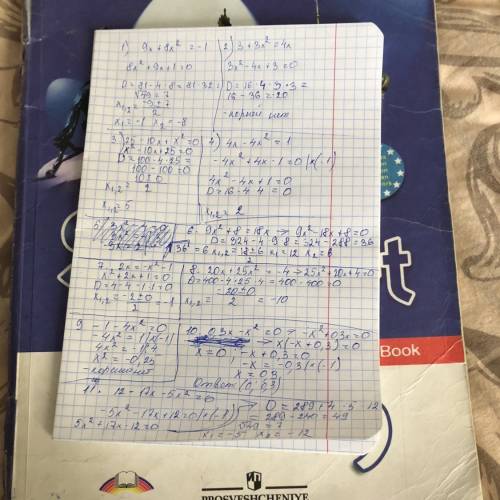 1) 9x + 8x² = -1
8x² + 9x + 1 = 0
D = 81 - 4 · 8 = 81 - 32 =
√49 = 7
x₁,₂ = -9 ± 7
2
x₁ = -1 x₂ = -8
2) 3 + 3x² = 4x
3x² - 4x + 3 = 0
D = 16 - 4 · 3 · 3 =
16 - 36 = -20
- корней нет
3) 25 - 10x + x² = 0
x² - 10x + 25 = 0
D = 100 - 4 · 25 =
100 - 100 = 0
10 ± 0
x₁,₂ = 2
x₁,₂ = 5
4) 4x - 4x² = 1
-4x² + 4x - 1 = 0 | × (-1)
4x² - 4x + 1 = 0
D = 16 - 4 · 4 = 0
x₁,₂ = 2
6. 9x² + 8 = 18x → 9x² - 18x + 8 = 0
D = 324 - 4 · 9 · 8 = 324 - 288 = 36
√36 = 6 x₁,₂ = 18 ± 6 x₁ = 12 x₂ = 6
7. -2x = -x² - 1
x² + 2x + 1 = 0
D = 4 - 4 · 1 · 1 = 0
x₁,₂ = -2 ± 0 = -1
2
8. 20x + 25x² = -4 → 25x² + 20x + 4 = 0
D = 400 - 4 · 25 · 4 = 400 - 400 = 0
x₁,₂ = -20 ± 0 = -10
2
9 - 1 - 4x² = 0
4x² = 1 | × (-1)
4x² = -1 | : 4
x² = -0,25
- корней нет
10. 0,3x - x² = 0 → -x² + 0,3x = 0
x(-x + 0,3) = 0
x = 0 , -x + 0,3 = 0
-x = -0,3 | × (-1)
x = 0,3
Ответ (0; 0,3)
11. 12 - 17x - 5x² = 0
-5x² - 17x + 12 = 0 | × (-1)
5x² + 17x - 12 = 0
D = 289 + 4 · 5 · 12
= 289 - 240 = 49
√49 = 7
x₁ = -5 x₂ = -12
Book
PROSVESHCHENIYE